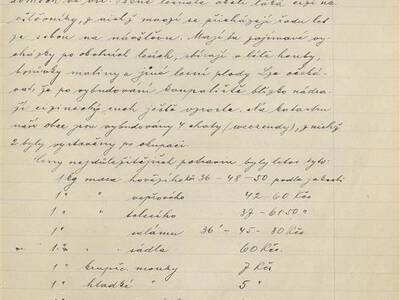 domcích ve vsi. Obec
návštěvníky, z nichž mnozí se přicházejí řadu let
je sebou na návštěvu. Mají tu zajímavé vy-
cházky po okolních lesích, sbírají v létě houby,
borůvky maliny a jiné lesní plody. Lze očeká-
vati, že po vybudování koupaliště blízko nádra-
ží cizinecký ruch ještě vzroste. Na katastru
naší obce jsou vybudovány 4 chaty (weekendy), z nichž
2 byly vystavěny po okupaci.
Ceny nejdůležitějších potravin byly letos tyto:
1 kg masa hovězího 36 - 48 - 50 podle jakosti
1 " " vepřového 42 - 60 Kčs
1 " " telecího 37 - 61.50 "
1 " salámu 36 - 45 - 80 Kčs
1 " sádla 60 Kčs.
1 " krupic. mouky 7 Kčs
1 " hladké " 5 "